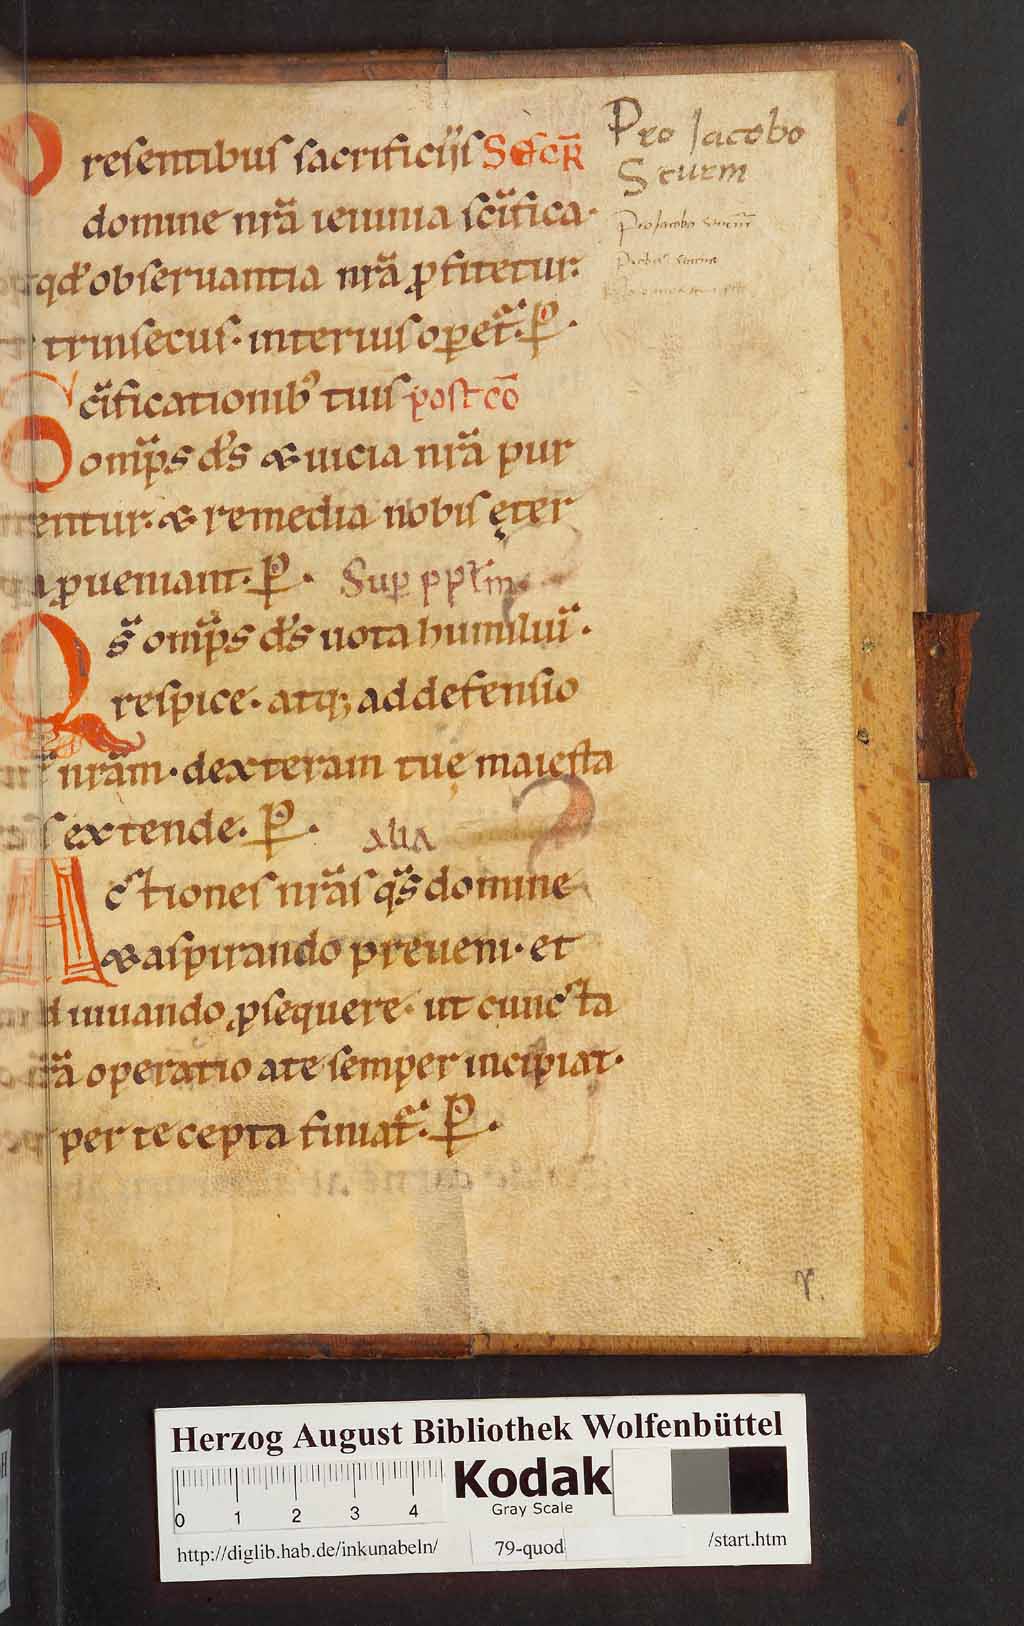 Presentibus sacrificijs Secr̄
domine nr̄a ieiunia sc̄ifica·
qd̓ obseruantia nr̄a ꝓfitetur·
trinsecus· interius oꝑet᷑· P̲·
Sc̄ificationib᾽ tuis post cō
Omp̄s d̓s & uicia nr̄a pur
entur· & remedia nobis ęter
a ꝓueniant· P̲· Suꝑ ppl̄m
Qs̄ omp̄s d̓s uota humiliū·
respice· atq; ad defensio
nr̄am· dexteram tuę maiesta
s extende· P̲· alia
Actiones nr̄as qs̄ domine
& aspirando preueni· et
d iuuando ꝓsequere· ut cuncta
r̄a operatio a te semper incipiat·
per te cepta finiat᷑· P̲·
Pro Jacobo
Sturm
Pro Jacobo
Herzog August Bibliothek Wolfenbüttel
0 1 2 3 4
Kodak
Gray Scale
http://diglib.hab.de/inkunabeln/ 79-quod /start.htm